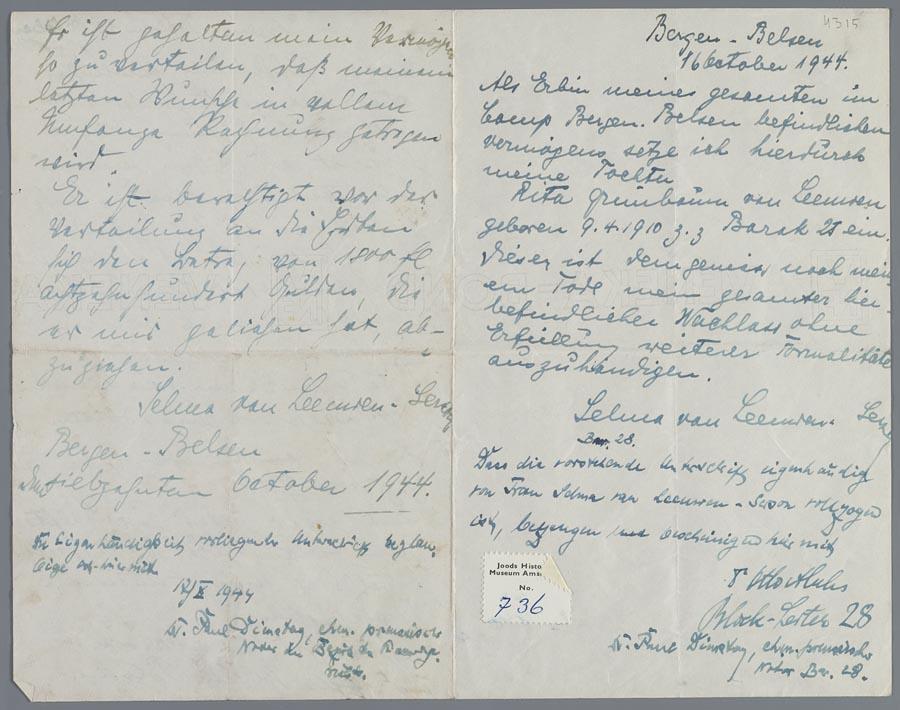 Er ist gehalten mein Vermögen
so zu verteilen, daß meinem
letzten Wunsche in vollem
Umfange Rechnung getragen
wird
Er ist berechtigt vor der
Verteilung an die Erben
sich den Betrag von 1800 fl
achtzehnhundert Gulden, die
er mir geliehen hat, ab-
zuziehen.
Selma van Leeuwen-
Bergen-Belsen
den siebzehnten October 1944.
Die Eigenhändigkeit vorliegender Unterschrift beglau-
bige ich hiermit
17/X 1944
Dr. Paul Dienstag, ehem. preussischer
Notar
4315
Bergen-Belsen
16 October 1944.
Als Erbin meines gesamten im
Camp Bergen-Belsen befindlichen
Vermögens setze ich hierdurch
meine Tochter
Rita Grünbaum van Leeuwen
geboren 9.4.1910 z.z Barak 25 ein.
Dieser ist demgemäss nach mein-
em Tode mein gesamter hier
befindlicher Nachlass ohne
Erfüllung weiterer Formalitäten
auszuhändigen.
Selma van Leeuwen-
Bar. 28.
Dass die vorstehende Unterschrift eigenhändig
von Frau Selma van Leeuwen- vollzogen
ist, bezeugen und bescheinigen hiermit
28
Dr. Paul Dienstag, ehem. preussischer
Notar Bar. 28.
Joods Histo
Museum Ams
No.
736